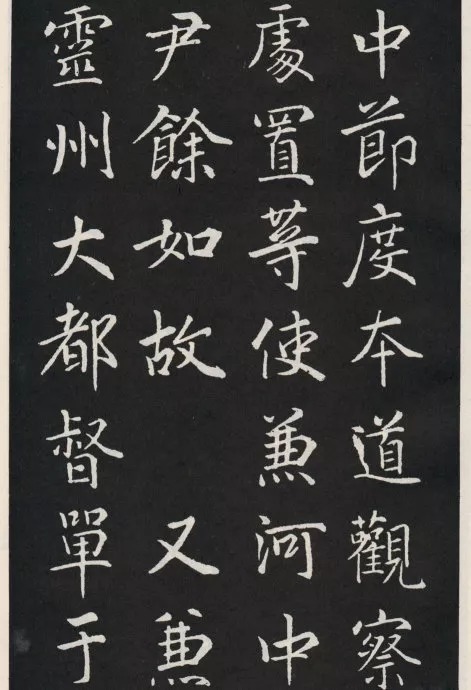 中節度本道觀察
處置等使兼河中
尹餘如故 又兼
靈州大都督單于